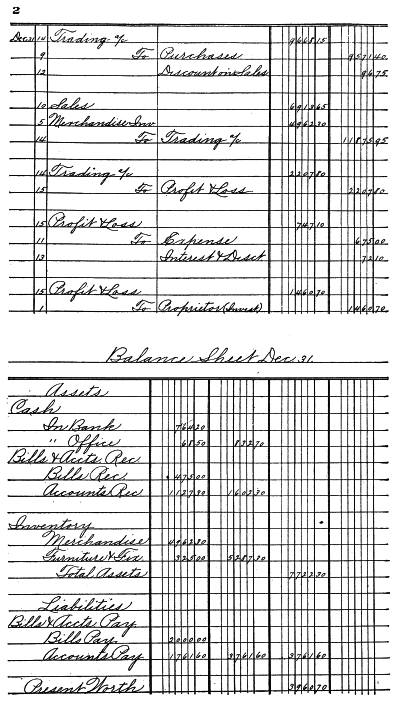 2
Dec 31 14 Trading a/c 9668 15
9 To Purchases 9571 40
12 Discount on Sales 96 75
10 Sales 6913 65
5 Merchandise Inv 4962 30
14 To Trading a/c 11875 95
14 Trading a/c 2207 80
15 To Profit & Loss 2207 80
15 Profit & Loss 747 10
11 To Expense 675 00
13 Interest & Disct 72 10
15 Profit & Loss 1460 70
1 To Proprietor (Invest) 1460 70
Balance Sheet Dec. 31.
Assets
Cash
In Bank 764 20
" Office 68 50 832 70
Bills & Accts Rec
Bills Rec 475 00
Accounts Rec 1127 30 1602 30
Inventory
Merchandise 4962 30
Furniture & Fix 325 00 5287 30
Total Assets 7722 30
Liabilities
Bills & Accts Pay
Bills Pay 2000 00
Accounts Pay 1761 60 3761 60 3761 60
Present Worth 3960 70